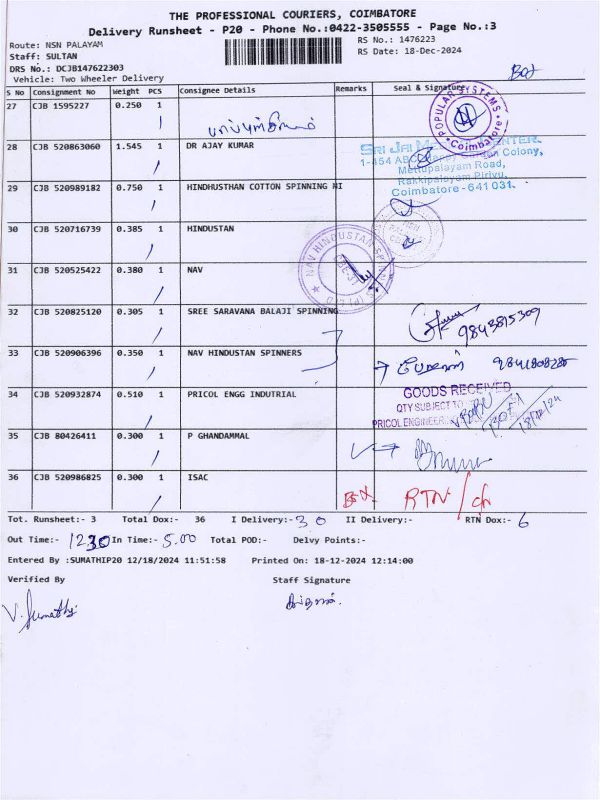 THE PROFESSIONAL COURIERS, COIMBATORE
Delivery Runsheet - P20 - Phone No.:0422-3505555 - Page No.:3
Route: NSN PALAYAM
RS No.: 1476223
Staff: SULTAN
RS Date: 18-Dec-2024
DRS No.: DCJB147622303
Vehicle: Two Wheeler Delivery
S No Consignment No Weight PCS Consignee Details Remarks Seal & Signature
27 CJB 1595227 0.250 1
POPULAR SYSTEMS
Coimbatore
28 CJB 520863060 1.545 1 DR AJAY KUMAR
Colony,
Mettupalayam Road,
Rakkipalayam Pirivu,
Coimbatore - 641 031.
29 CJB 520989182 0.750 1 HINDHUSTHAN COTTON SPINNING MI
30 CJB 520716739 0.385 1 HINDUSTAN
NAV HINDUSTAN SPINNERS
31 CJB 520525422 0.380 1 NAV
32 CJB 520825120 0.305 1 SREE SARAVANA BALAJI SPINNING
9843815309
33 CJB 520906396 0.350 1 NAV HINDUSTAN SPINNERS
34 CJB 520932874 0.510 1 PRICOL ENGG INDUTRIAL
GOODS RECEIVED
QTY SUBJECT TO
PRICOL ENGINEER
18/12/24
35 CJB 80426411 0.300 1 P GHANDAMMAL
36 CJB 520986825 0.300 1 ISAC
RTN
Tot. Runsheet:- 3 Total Dox:- 36 I Delivery:- 30 II Delivery:- RTN Dox:- 6
Out Time:- 1230 In Time:- 5.00 Total POD:- Delvy Points:-
Entered By :SUMATHIP20 12/18/2024 11:51:58 Printed On: 18-12-2024 12:14:00
Verified By Staff Signature
V. Sumathi